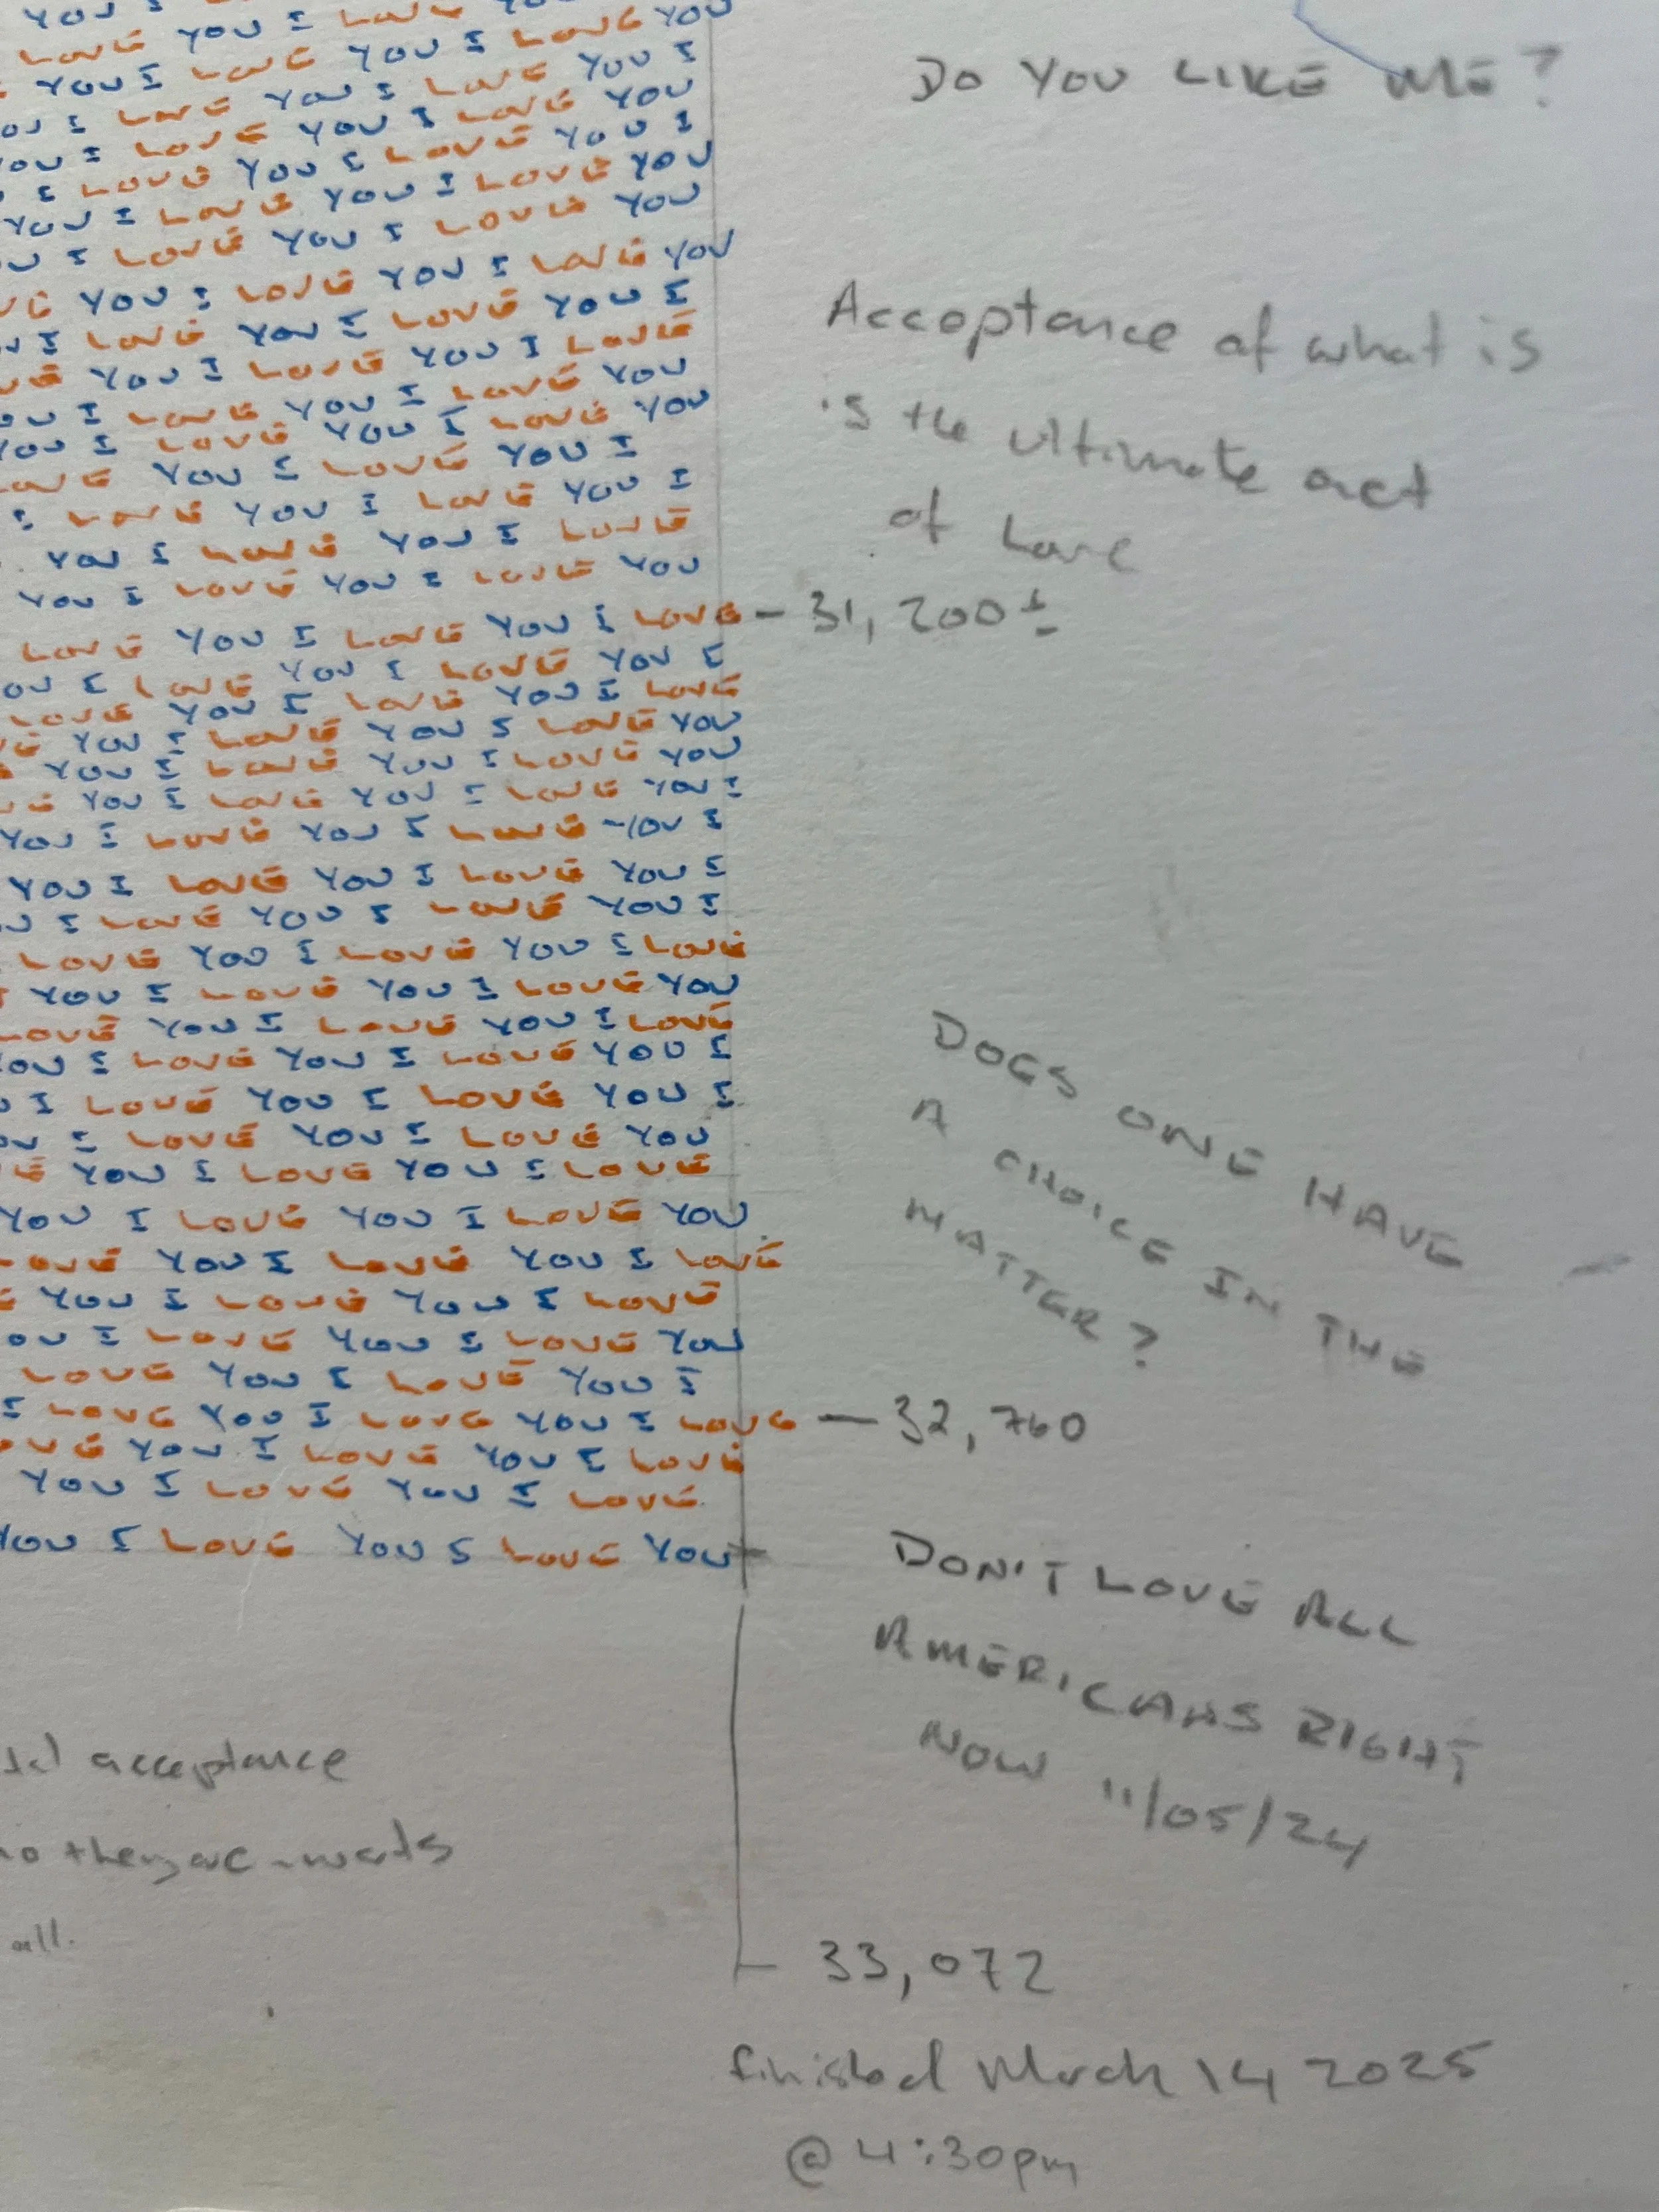 YOU I LOVE YOU
LOVE YOU I LOVE YOU
YOU I LOVE YOU I LOVE YOU
I LOVE YOU I LOVE YOU I
YOU I LOVE YOU I LOVE YOU
I LOVE YOU I LOVE YOU I
YOU I LOVE YOU I LOVE YOU
I LOVE YOU I LOVE YOU
YOU I LOVE YOU I LOVE YOU
I LOVE YOU I LOVE YOU I
YOU I LOVE YOU I LOVE
I LOVE YOU I LOVE YOU
YOU I LOVE YOU I LOVE YOU
LOVE YOU I LOVE YOU I
I LOVE YOU I LOVE YOU I
YOU I LOVE YOU I LOVE
YOU I LOVE YOU I LOVE YOU
LOVE YOU I LOVE YOU I LOVE - 31,200±
OU I LOVE YOU I LOVE YOU I
LOVE YOU I LOVE YOU I LOVE
YOU I LOVE YOU I LOVE YOU
YOU I LOVE YOU I LOVE YOU
YOU I LOVE YOU I LOVE YOU I
YOU I LOVE YOU I LOVE YOU I
YOU I LOVE YOU I LOVE YOU I
I LOVE YOU I LOVE YOU I
LOVE YOU I LOVE YOU I LOVE
YOU I LOVE YOU I LOVE YOU
LOVE YOU I LOVE YOU I LOVE
OU I LOVE YOU I LOVE YOU I
I LOVE YOU I LOVE YOU I
I LOVE YOU I LOVE YOU
YOU I LOVE YOU I LOVE
YOU I LOVE YOU I LOVE YOU
OVE YOU I LOVE YOU I LOVE
YOU I LOVE YOU I LOVE
OU I LOVE YOU I LOVE YOU
LOVE YOU I LOVE YOU I
I LOVE YOU I LOVE YOU I LOVE — 32,760
OVE YOU I LOVE YOU I LOVE
YOU I LOVE YOU I LOVE
YOU I LOVE YOU I LOVE YOU
acceptance
they are - warts
all.
DO YOU LIKE ME?
Acceptance of what is
is the ultimate act
of Love
DOES ONE HAVE
A CHOICE IN THE
MATTER?
DON'T LOVE ALL
AMERICANS RIGHT
NOW 11/05/24
33,072
finished March 14 2025
@ 4:30pm